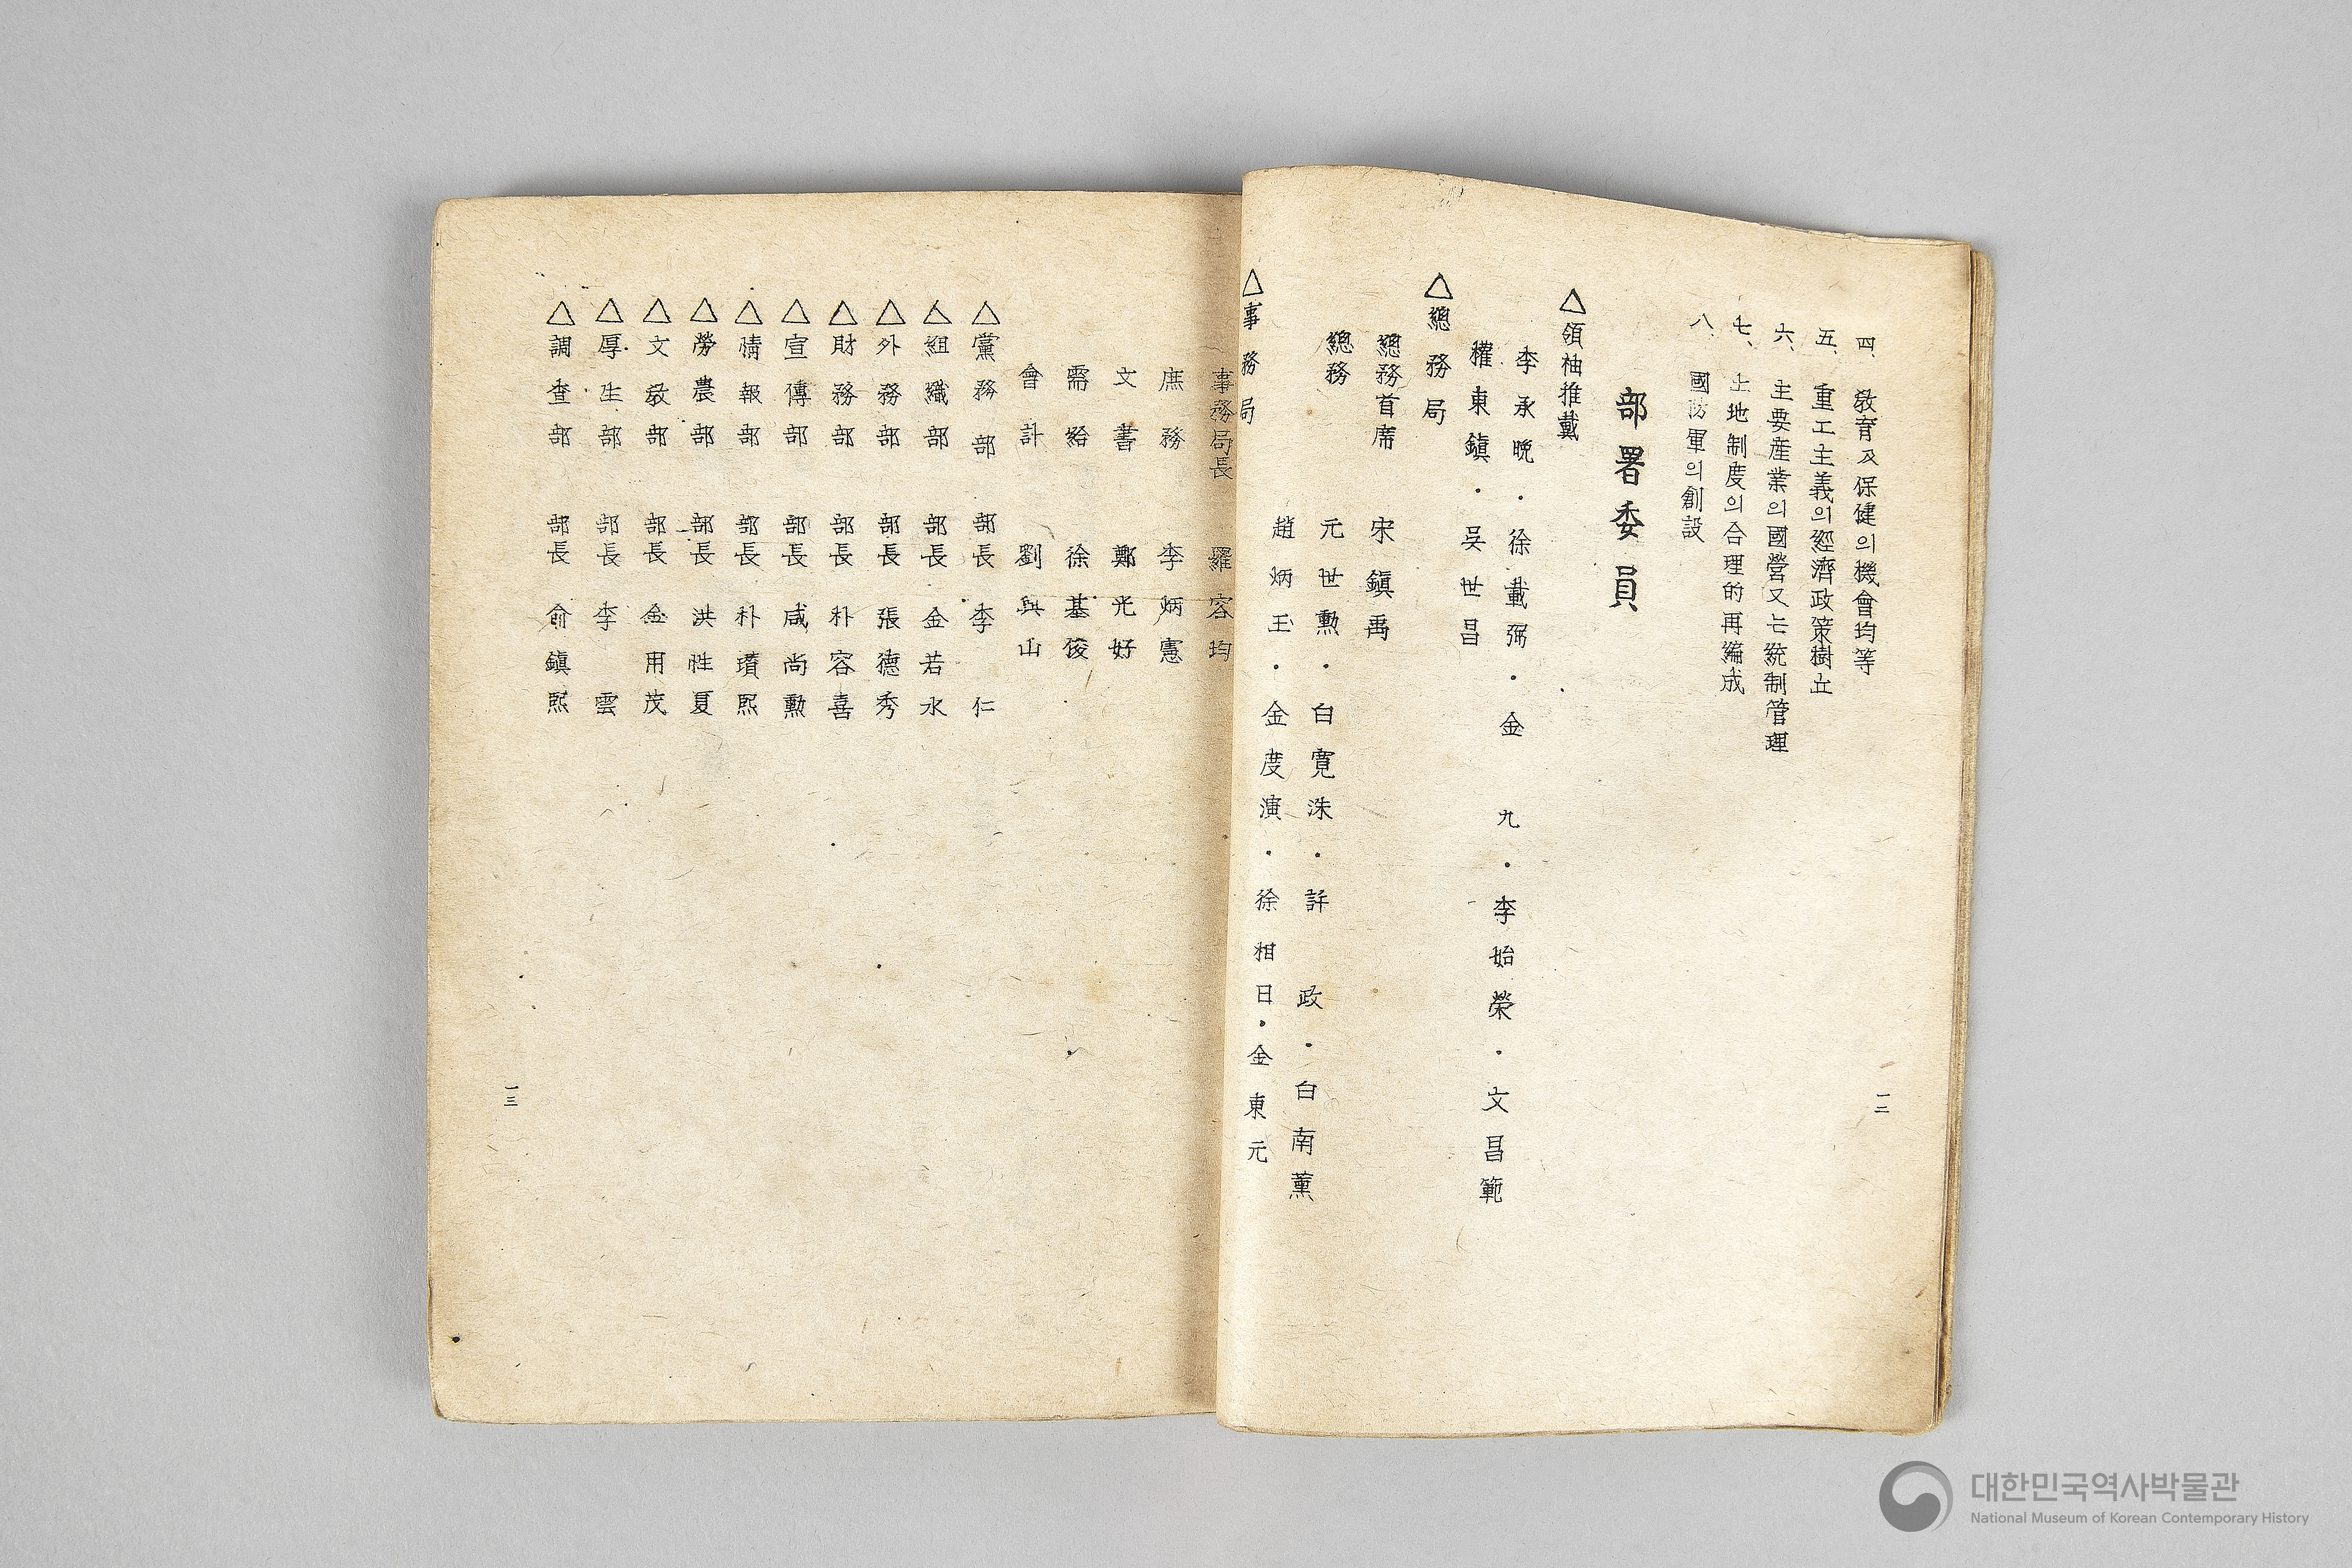 四、 敎育及保健의機會均等
五、 重工主義의經濟政策樹立
六、 主要産業의國營又는統制管理
七、 土地制度의合理的再編成
八、 國防軍의創設
部署委員
△領袖推戴
李承晩・徐載弼・金 九・李始榮・文昌範
權東鎭・吳世昌
△總務局
總務首席 宋鎭禹
總務 元世勳・白寬洙・許 政・白南薰
趙炳玉・金度演・徐相日・金東元
△事務局
一二
事務局長 羅容均
庶務 李炳憲
文書 鄭光好
需給 徐基俊
會計 劉與山
△黨務部 部長 李 仁
△組織部 部長 金若水
△外務部 部長 張德秀
△財務部 部長 朴容喜
△宣傳部 部長 咸尚勳
△情報部 部長 朴瓚熙
△勞農部 部長 洪性夏
△文敎部 部長 金用茂
△厚生部 部長 李 雲
△調査部 部長 俞鎭熙
一三
대한민국역사박물관
National Museum of Korean Contemporary History